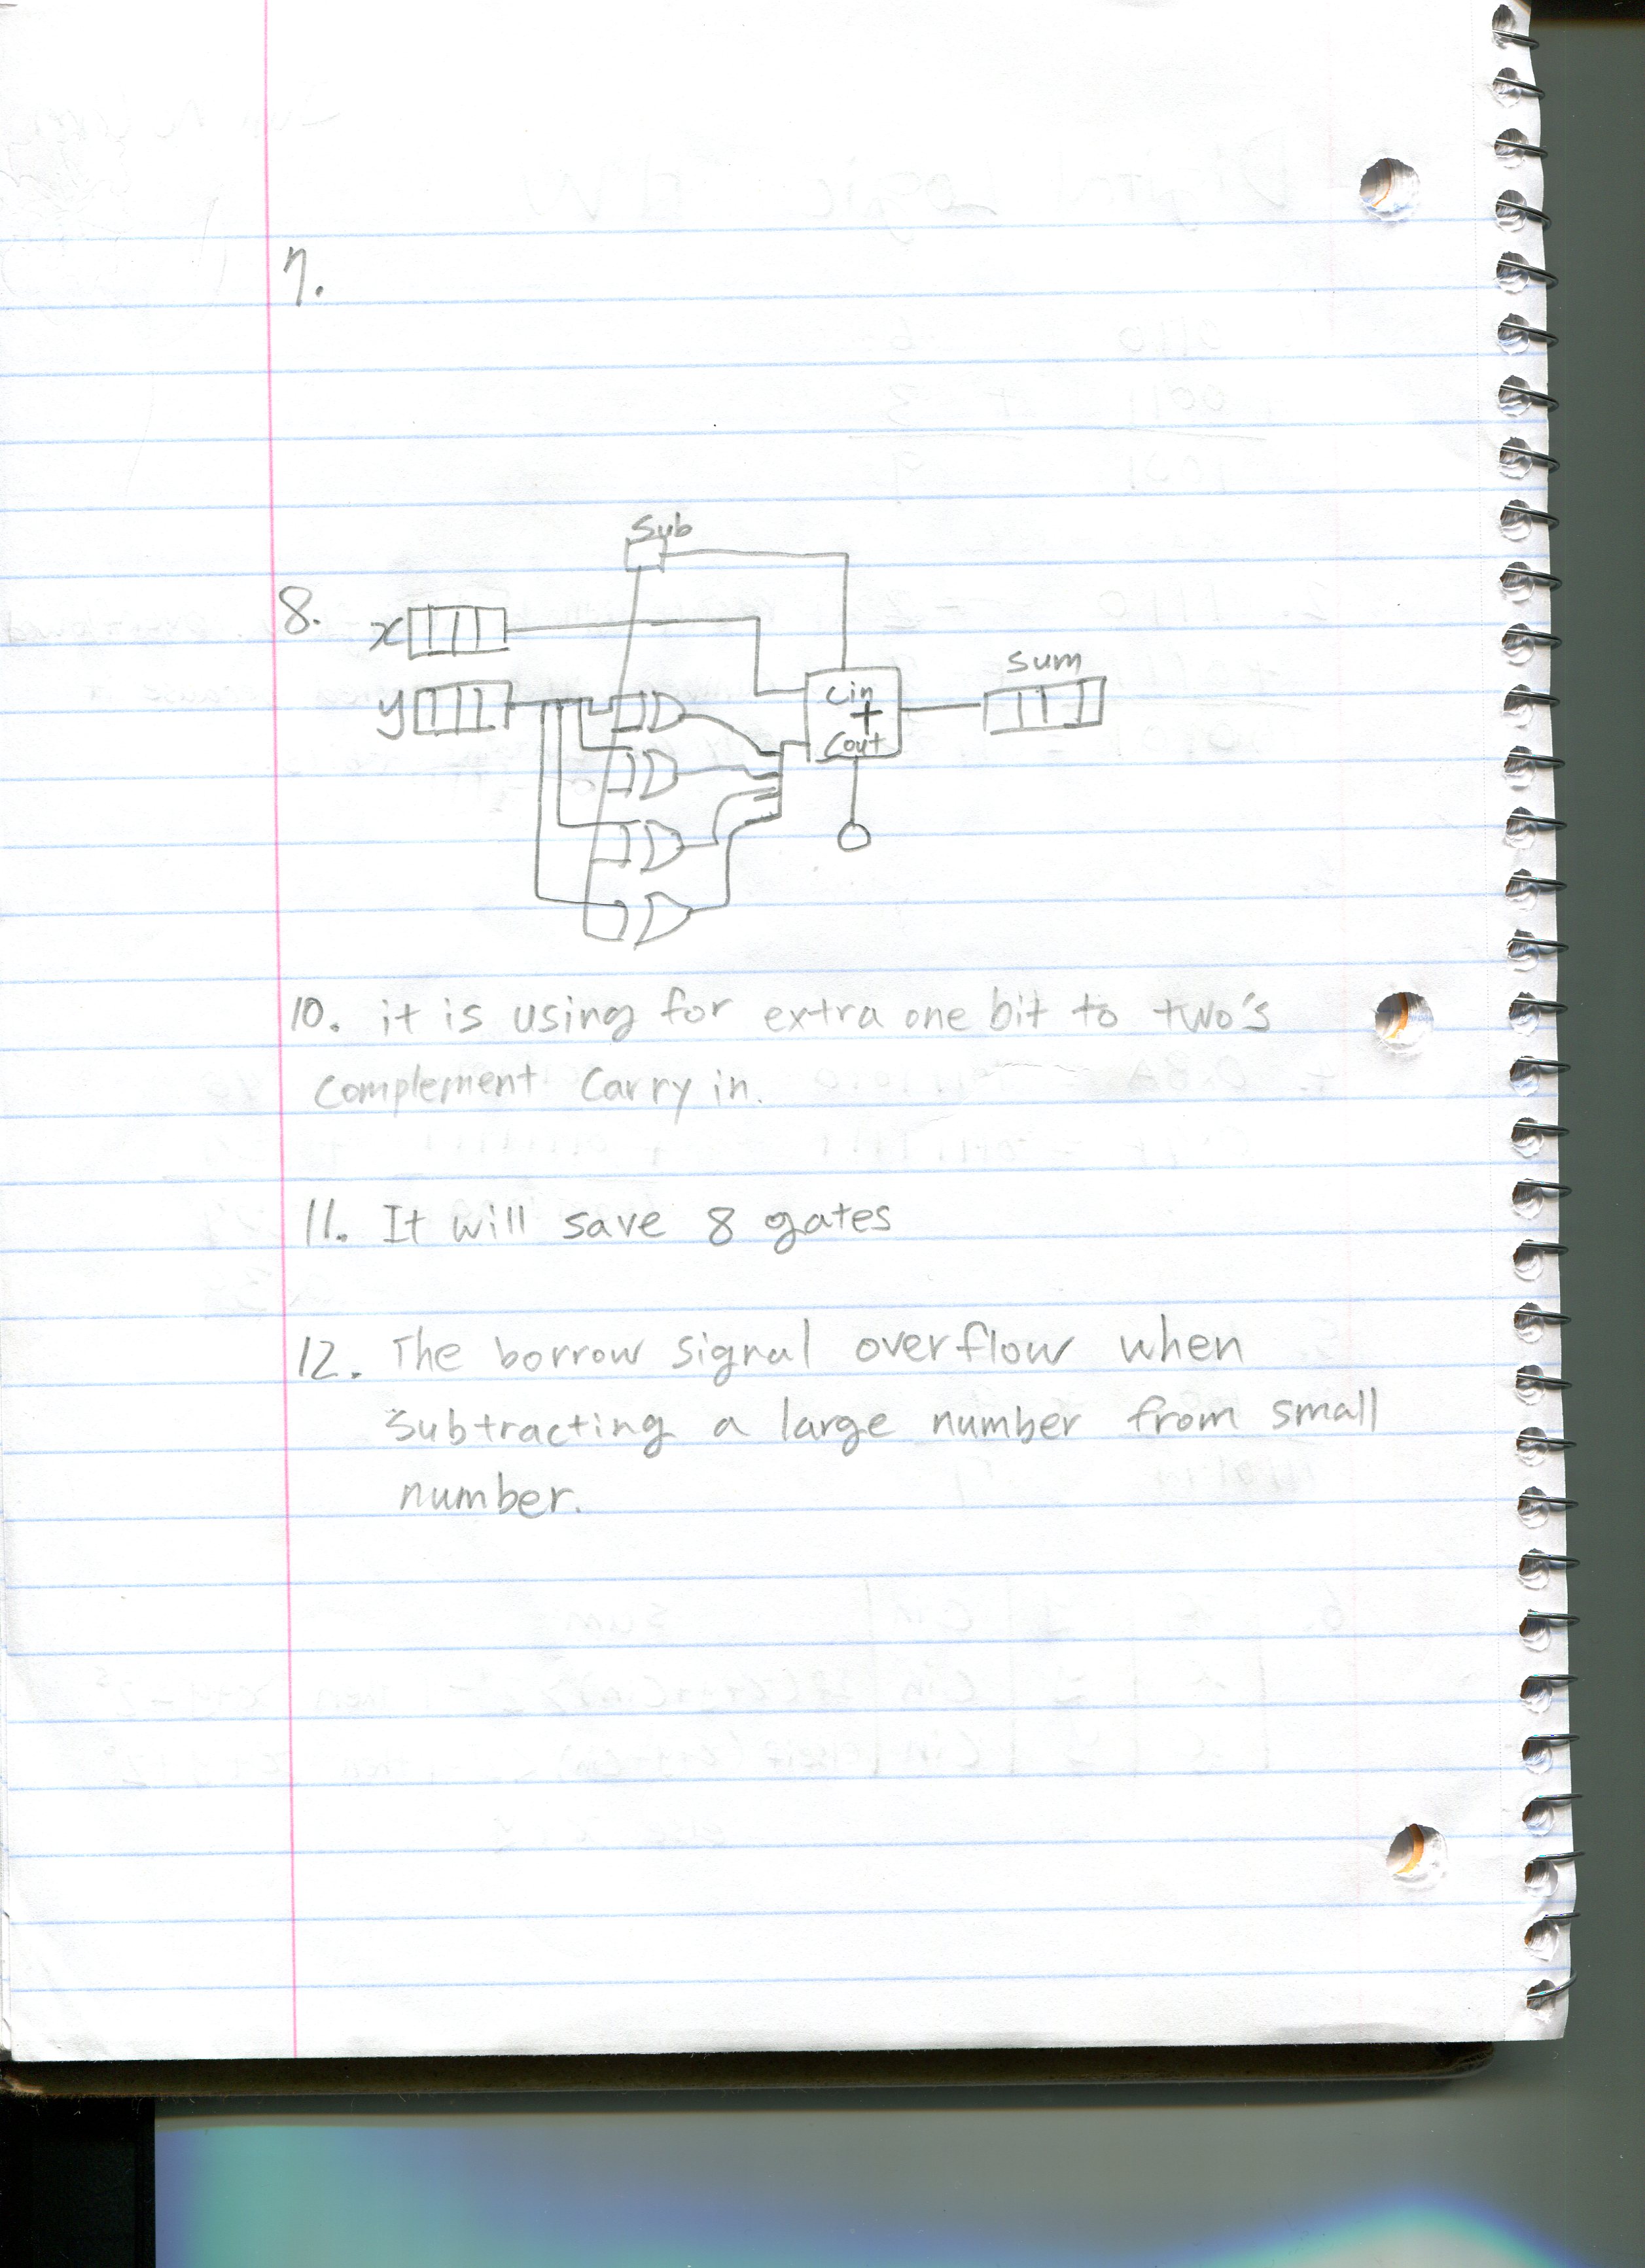 7.
Sub
8. x
sum
y
Cin
+
Cout
10. it is using for extra one bit to two's
complement carry in.
11. It will save 8 gates
12. The borrow signal overflow when
subtracting a large number from small
number.